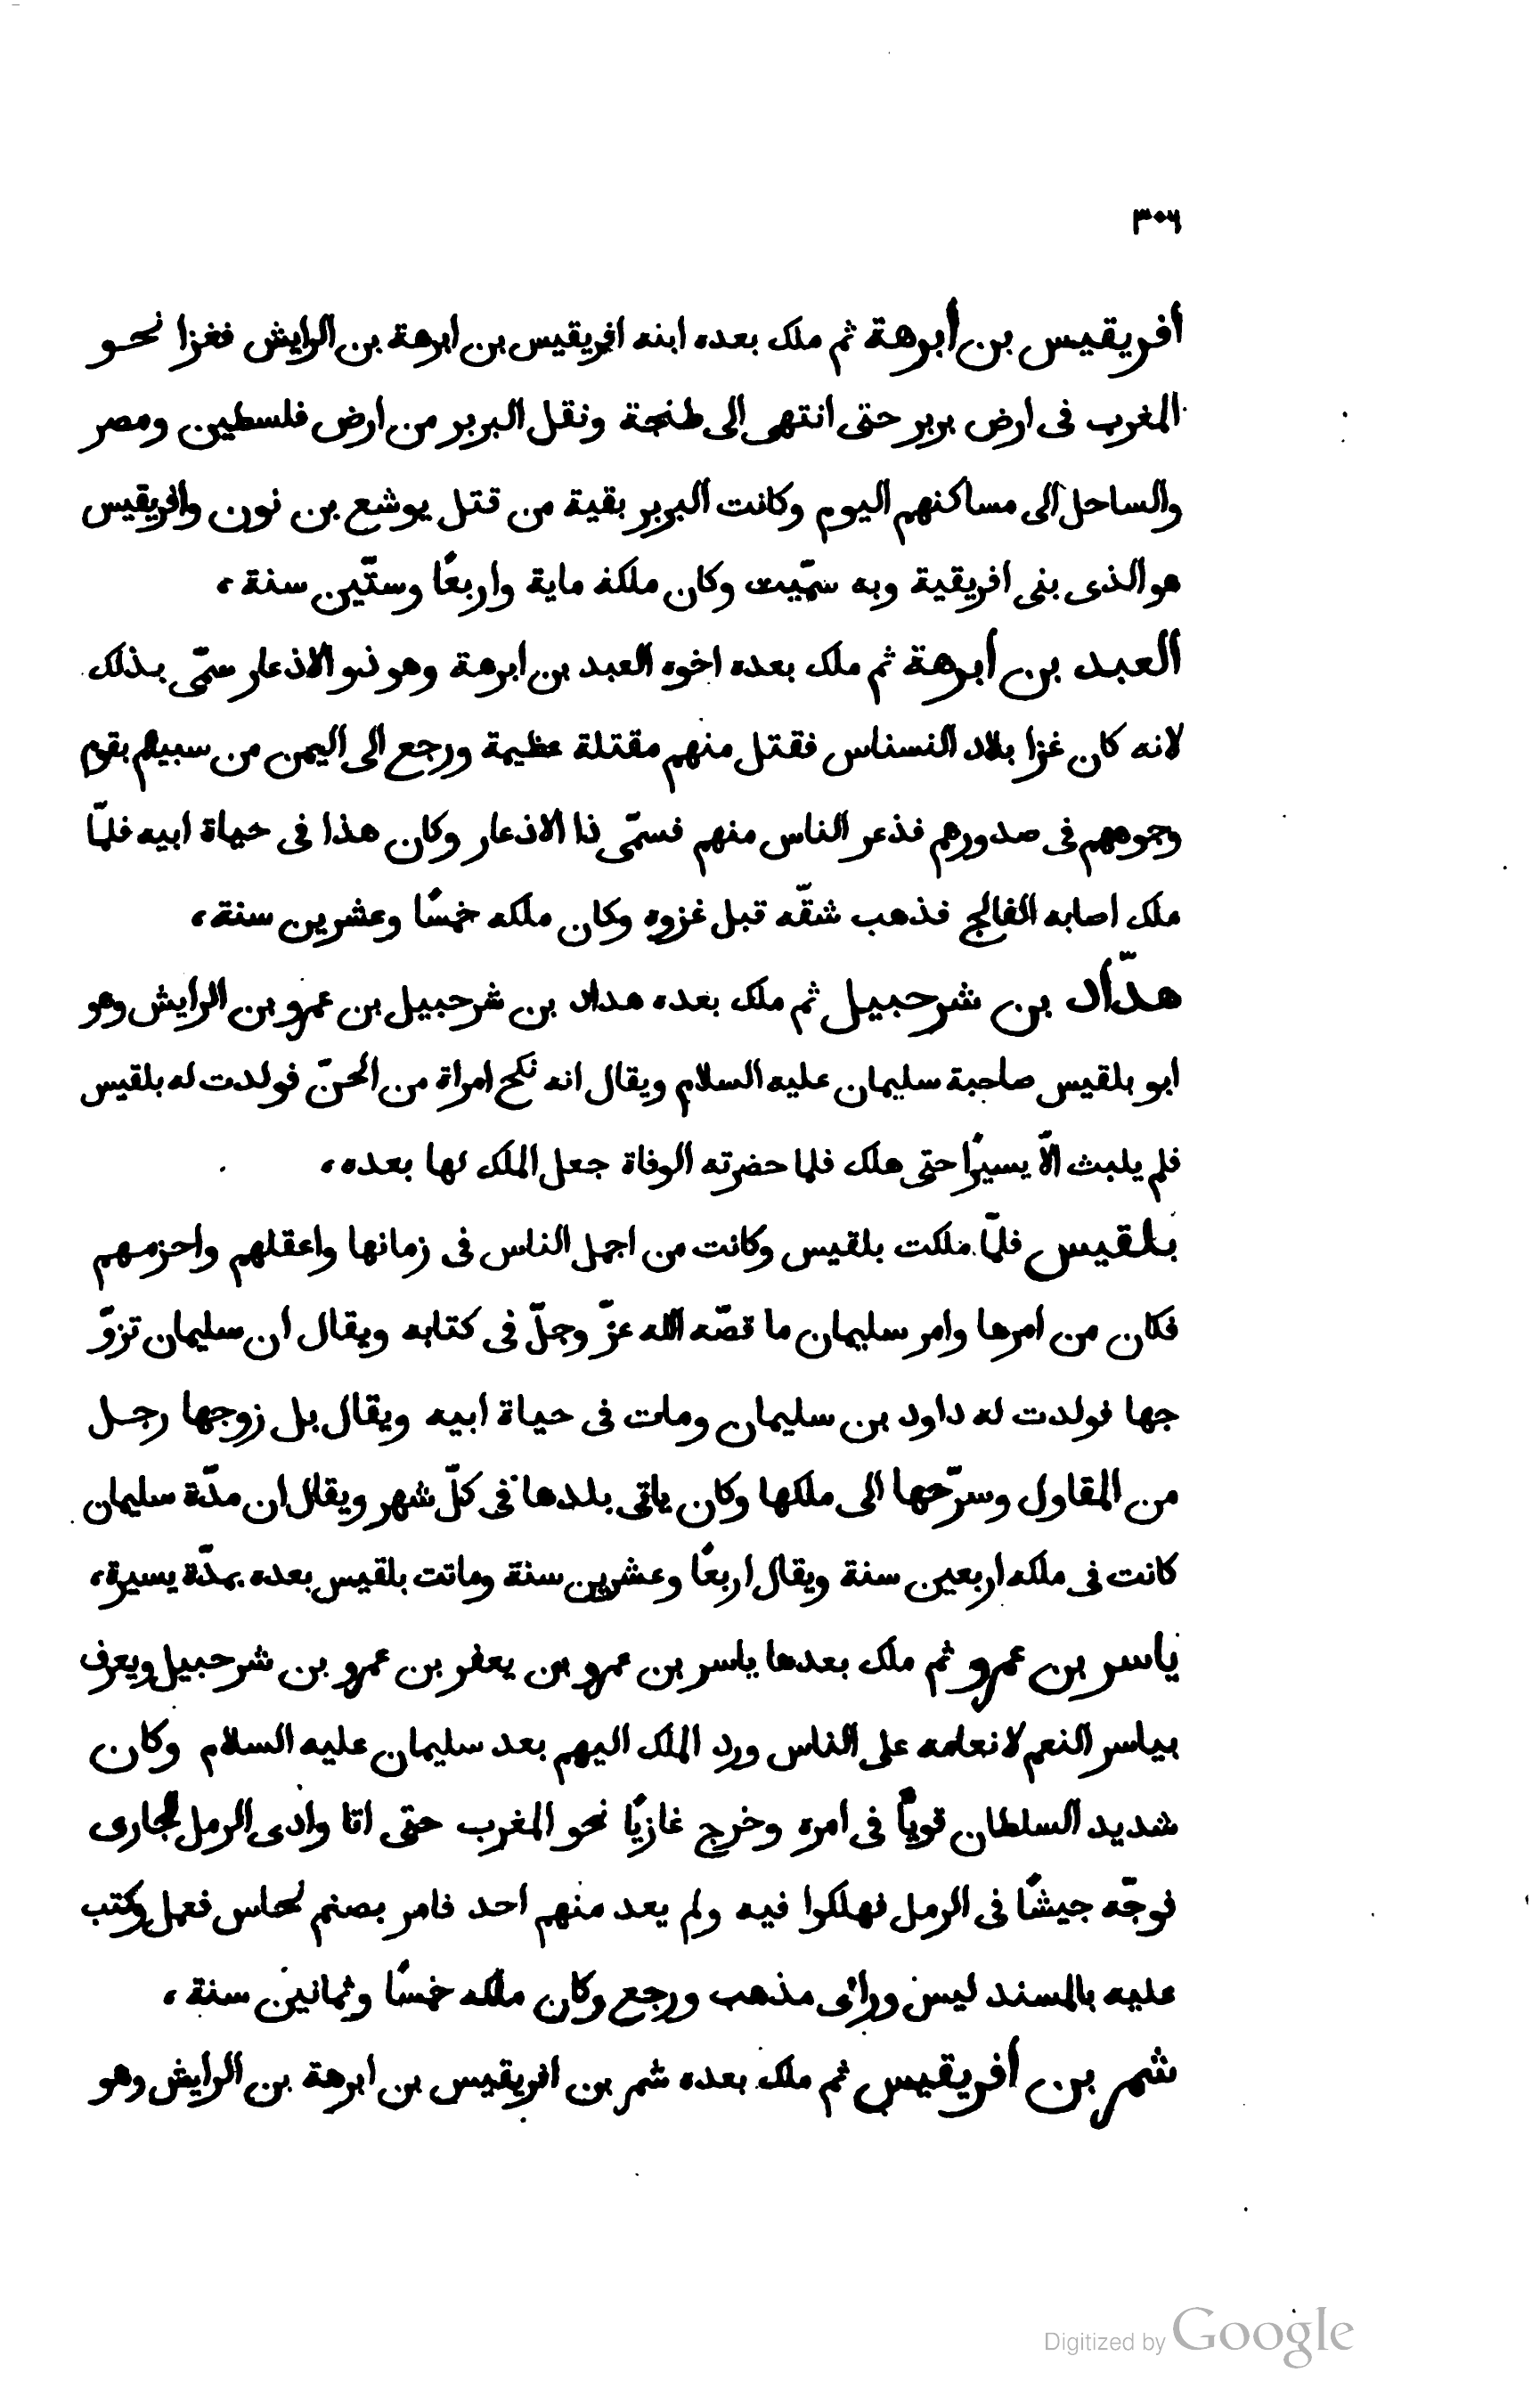 ٣٠٦
أفريقيس بن أبرهة ثم ملك بعده ابنه افريقيس بن ابرهة بن الرايش فغزا نحو
المغرب فى ارض بربر حتى انتهى الى طنجة ونقل البربر من ارض فلسطين ومصر
والساحل الى مساكنهم اليوم وكانت البربر بقية من قتل يوشع بن نون وافريقيس
هو الذى بنى افريقية وبه سمّيت وكان ملكه ماية واربعًا وستّين سنة،
العبد بن أبرهة ثم ملك بعده اخوه العبد بن ابرهة وهو ذو الاذعار سمّى بذلك
لانه كان غزا بلاد النسناس فقتل منهم مقتلة عظيمة ورجع الى اليمن من سبيهم بقوم
وجوههم فى صدورهم فذعر الناس منهم فسمّى ذا الاذعار وكان هذا فى حياة ابيه فلمّا
ملك اصابه الفالج فذهب شقّه قبل غزوه وكان ملكه خمسًا وعشرين سنة،
هدّاد بن شرحبيل ثم ملك بعده هداد بن شرحبيل بن عمرو بن الرايش وهو
ابو بلقيس صاحبة سليمان عليه السلام ويقال انه نكح امراة من الحنّ فولدت له بلقيس
فلم يلبث الّا يسيرًا حتى هلك فلما حضرته الوفاة جعل الملك لها بعده،
بلقيس فلمّا ملكت بلقيس وكانت من اجمل الناس فى زمانها واعقلهم واحزمهم
فكان من امرها وامر سليمان ما قصّه الله عزّ وجلّ فى كتابه ويقال ان سليمان تزوّ
جها فولدت له داود بن سليمان ومات فى حياة ابيه ويقال بل زوجها رجل
من المقاول وسرّحها الى ملكها وكان ياتى بلدها فى كلّ شهر ويقال ان مدّة سليمان
كانت فى ملكه اربعين سنة ويقال اربعًا وعشرين سنة وماتت بلقيس بعده بمدّة يسيرة،
ياسر بن عمرو ثم ملك بعدها ياسر بن عمرو بن يعفر بن عمرو بن شرحبيل ويعرف
بياسر النعم لانعامه على الناس ورد الملك اليهم بعد سليمان عليه السلام وكان
شديد السلطان قويًّا فى امره وخرج غازيًا نحو المغرب حتى اتا وادى الرمل الجارى
فوجّه جيشًا فى الرمل فهلكوا فيه ولم يعد منهم احد فامر بصنم نحاس فعمل وكتب
عليه بالمسند ليس ورائى مذهب ورجع وكان ملكه خمسًا وثمانين سنة،
شمر بن أفريقيس ثم ملك بعده شمر بن افريقيس بن ابرهة بن الرايش وهو
Digitized by Google